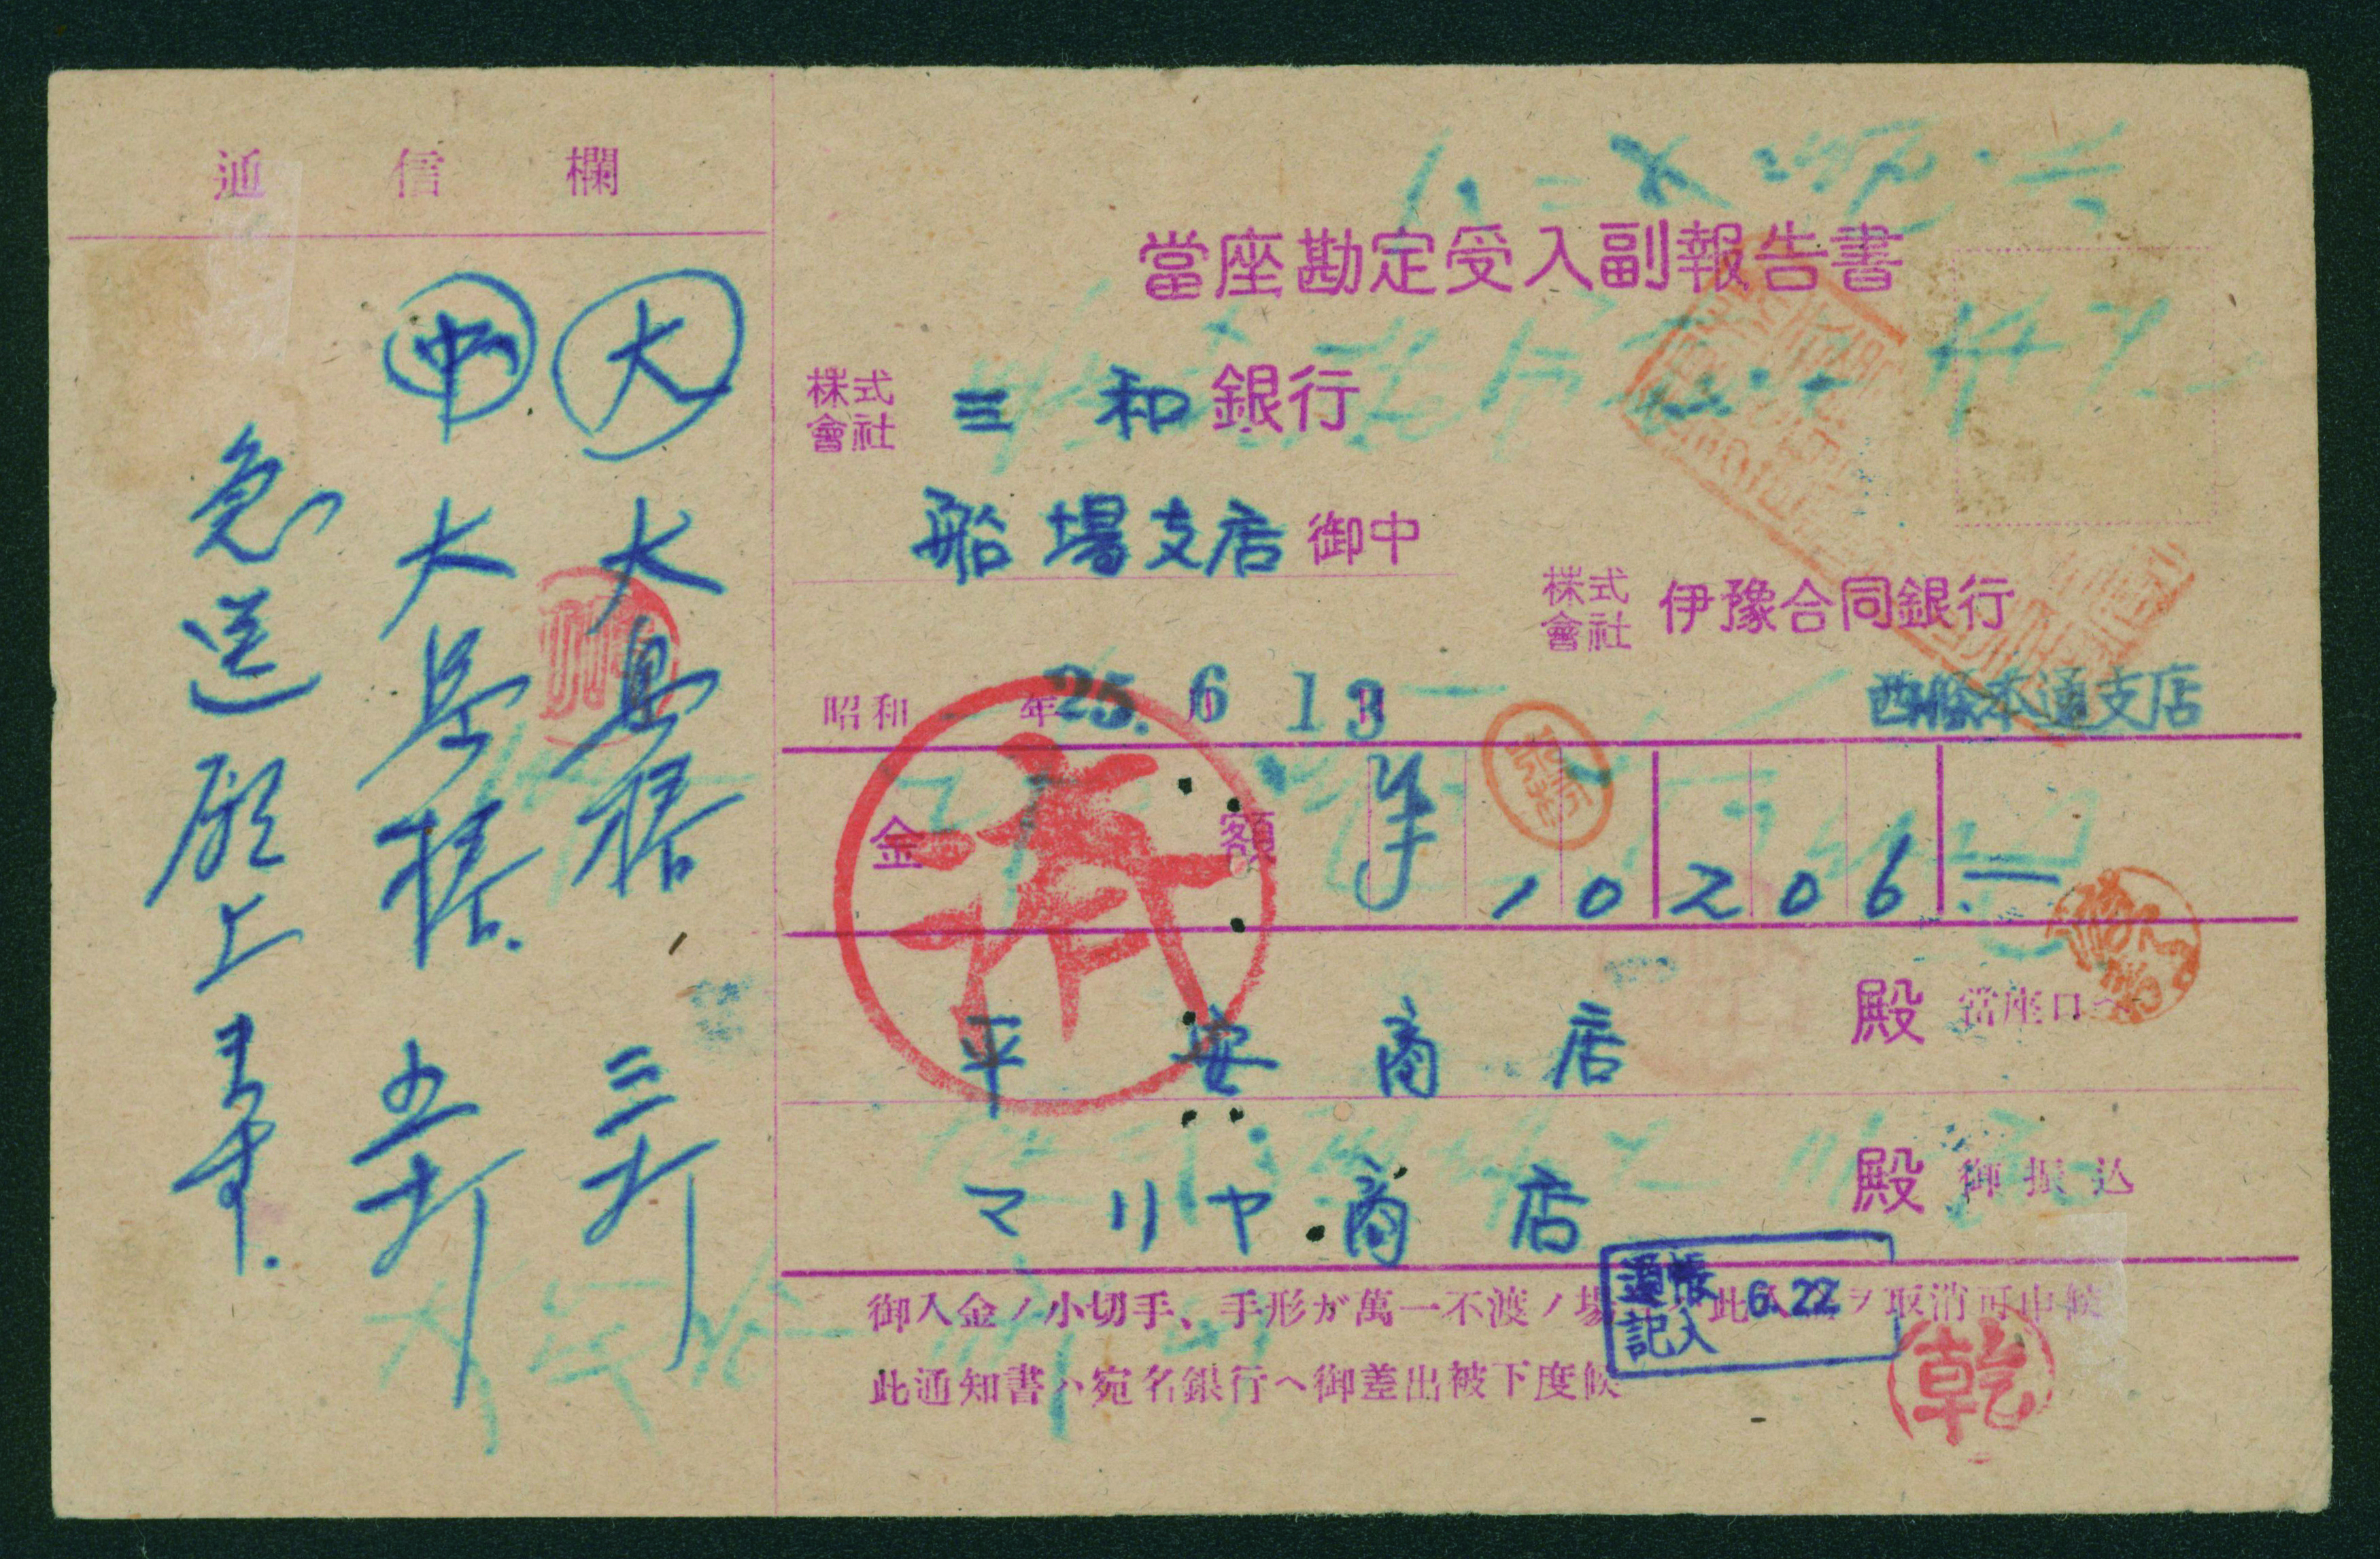 當座勘定受入副報告書
株式會社 三和銀行
船場支店御中
株式會社 伊豫合同銀行
西條本通支店
昭和 年 25. 6 13
金額 ¥ 10206.—
平安商店 殿 當座口へ
マリヤ商店 殿 御振込
御入金ノ小切手、手形ガ萬一不渡ノ場 此 ヲ取消可申候
此通知書ハ宛名銀行ヘ御差出被下度候
通帳記入 6.22
済
乾
通信欄
大 大島椿 三打
中 大島椿 五打
急送願上